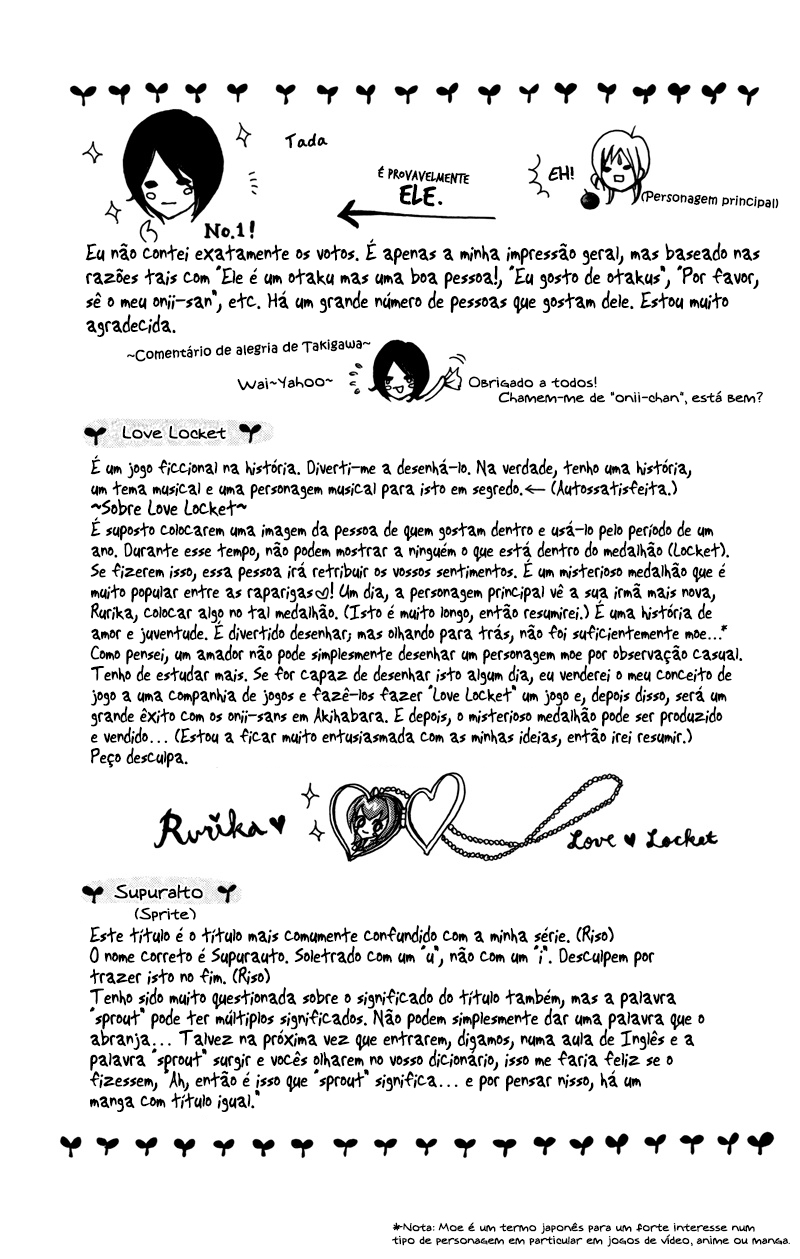 Tada
É PROVAVELMENTE
ELE.
EH!
(Personagem principal)
No.1!
Eu não contei exatamente os votos. É apenas a minha impressão geral, mas baseado nas
razões tais com "Ele é um otaku mas uma boa pessoa!, "Eu gosto de otakus", "Por favor,
sê o meu onii-san", etc. Há um grande número de pessoas que gostam dele. Estou muito
agradecida.
~Comentário de alegria de Takigawa~
Wai~Yahoo~
Obrigado a todos!
Chamem-me de "onii-chan", está bem?
Love Locket
É um jogo ficcional na história. Diverti-me a desenhá-lo. Na verdade, tenho uma história,
um tema musical e uma personagem musical para isto em segredo.← (Autossatisfeita.)
~Sobre Love Locket~
É suposto colocarem uma imagem da pessoa de quem gostam dentro e usá-lo pelo período de um
ano. Durante esse tempo, não podem mostrar a ninguém o que está dentro do medalhão (Locket).
Se fizerem isso, essa pessoa irá retribuir os vossos sentimentos. É um misterioso medalhão que é
muito popular entre as raparigas♡! Um dia, a personagem principal vê a sua irmã mais nova,
Rurika, colocar algo no tal medalhão. (Isto é muito longo, então resumirei.) É uma história de
amor e juventude. É divertido desenhar; mas olhando para trás, não foi suficientemente moe...*
Como pensei, um amador não pode simplesmente desenhar um personagem moe por observação casual.
Tenho de estudar mais. Se for capaz de desenhar isto algum dia, eu venderei o meu conceito de
jogo a uma companhia de jogos e fazê-los fazer "Love Locket" um jogo e, depois disso, será um
grande êxito com os onii-sans em Akihabara. E depois, o misterioso medalhão pode ser produzido
e vendido... (Estou a ficar muito entusiasmada com as minhas ideias, então irei resumir.)
Peço desculpa.
Rurika♥
Love ♥ Locket
Supuraito
(Sprite)
Este título é o título mais comumente confundido com a minha série. (Riso)
O nome correto é Supurauto. Soletrado com um "u", não com um "i". Desculpem por
trazer isto no fim. (Riso)
Tenho sido muito questionada sobre o significado do título também, mas a palavra
"sprout" pode ter múltiplos significados. Não podem simplesmente dar uma palavra que o
abranja... Talvez na próxima vez que entrarem, digamos, numa aula de Inglês e a
palavra "sprout" surgir e vocês olharem no vosso dicionário, isso me faria feliz se o
fizessem, "Ah, então é isso que "sprout" significa... e por pensar nisso, há um
manga com título igual."
*Nota: Moe é um termo japonês para um forte interesse num
tipo de personagem em particular em jogos de vídeo, anime ou manga.